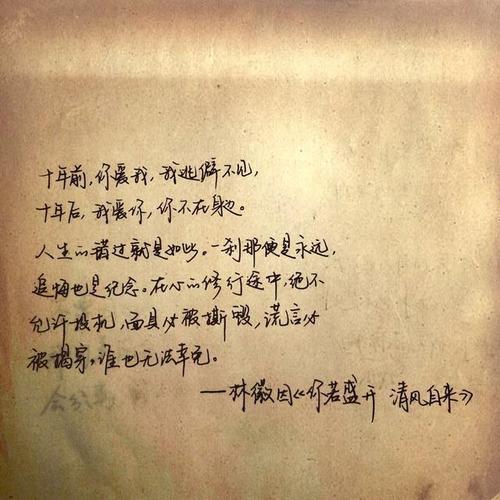 十年前,你爱我,我逃僻不见,
十年后,我爱你,你不在身边。
人生的错过就是如此。一刹那便是永远,
追悔也是纪念。在心的修行途中,绝不
允许投机,面具必被撕毁,谎言必
被揭穿,谁也无法幸免。
——林徽因《你若盛开 清风自来》